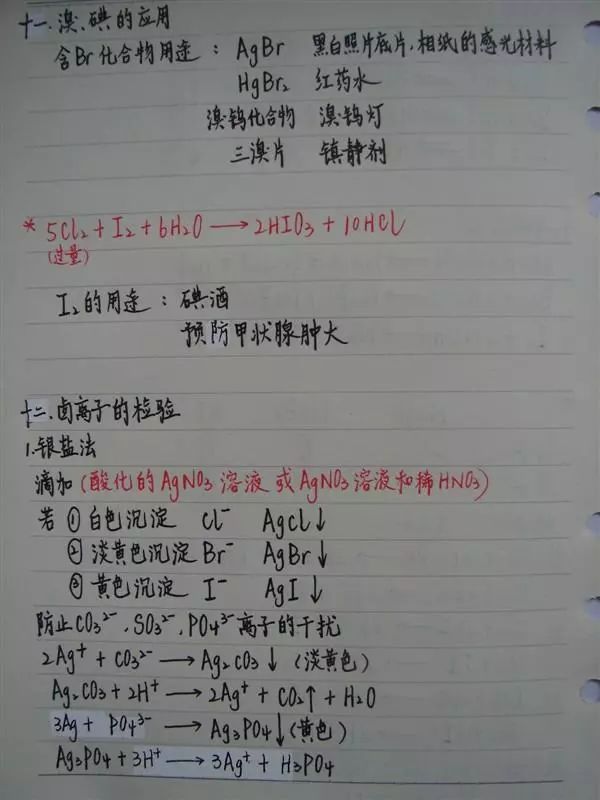 十一.溴、碘的应用
含Br化合物用途: AgBr 黑白照片底片,相纸的感光材料
HgBr₂ 红药水
溴钨化合物 溴钨灯
三溴片 镇静剂
* 5Cl₂ + I₂ + 6H₂O → 2HIO₃ + 10HCl
(过量)
I₂的用途: 碘酒
预防甲状腺肿大
十二.卤离子的检验
1.银盐法
滴加(酸化的AgNO₃溶液 或AgNO₃溶液和稀HNO₃)
若 ①白色沉淀 Cl⁻ AgCl↓
②淡黄色沉淀 Br⁻ AgBr↓
③黄色沉淀 I⁻ AgI↓
防止CO₃²⁻、SO₃²⁻、PO₄³⁻离子的干扰
2Ag⁺ + CO₃²⁻ → Ag₂CO₃↓ (淡黄色)
Ag₂CO₃ + 2H⁺ → 2Ag⁺ + CO₂↑ + H₂O
3Ag + PO₄³⁻ → Ag₃PO₄↓(黄色)
Ag₃PO₄ + 3H⁺ → 3Ag⁺ + H₃PO₄